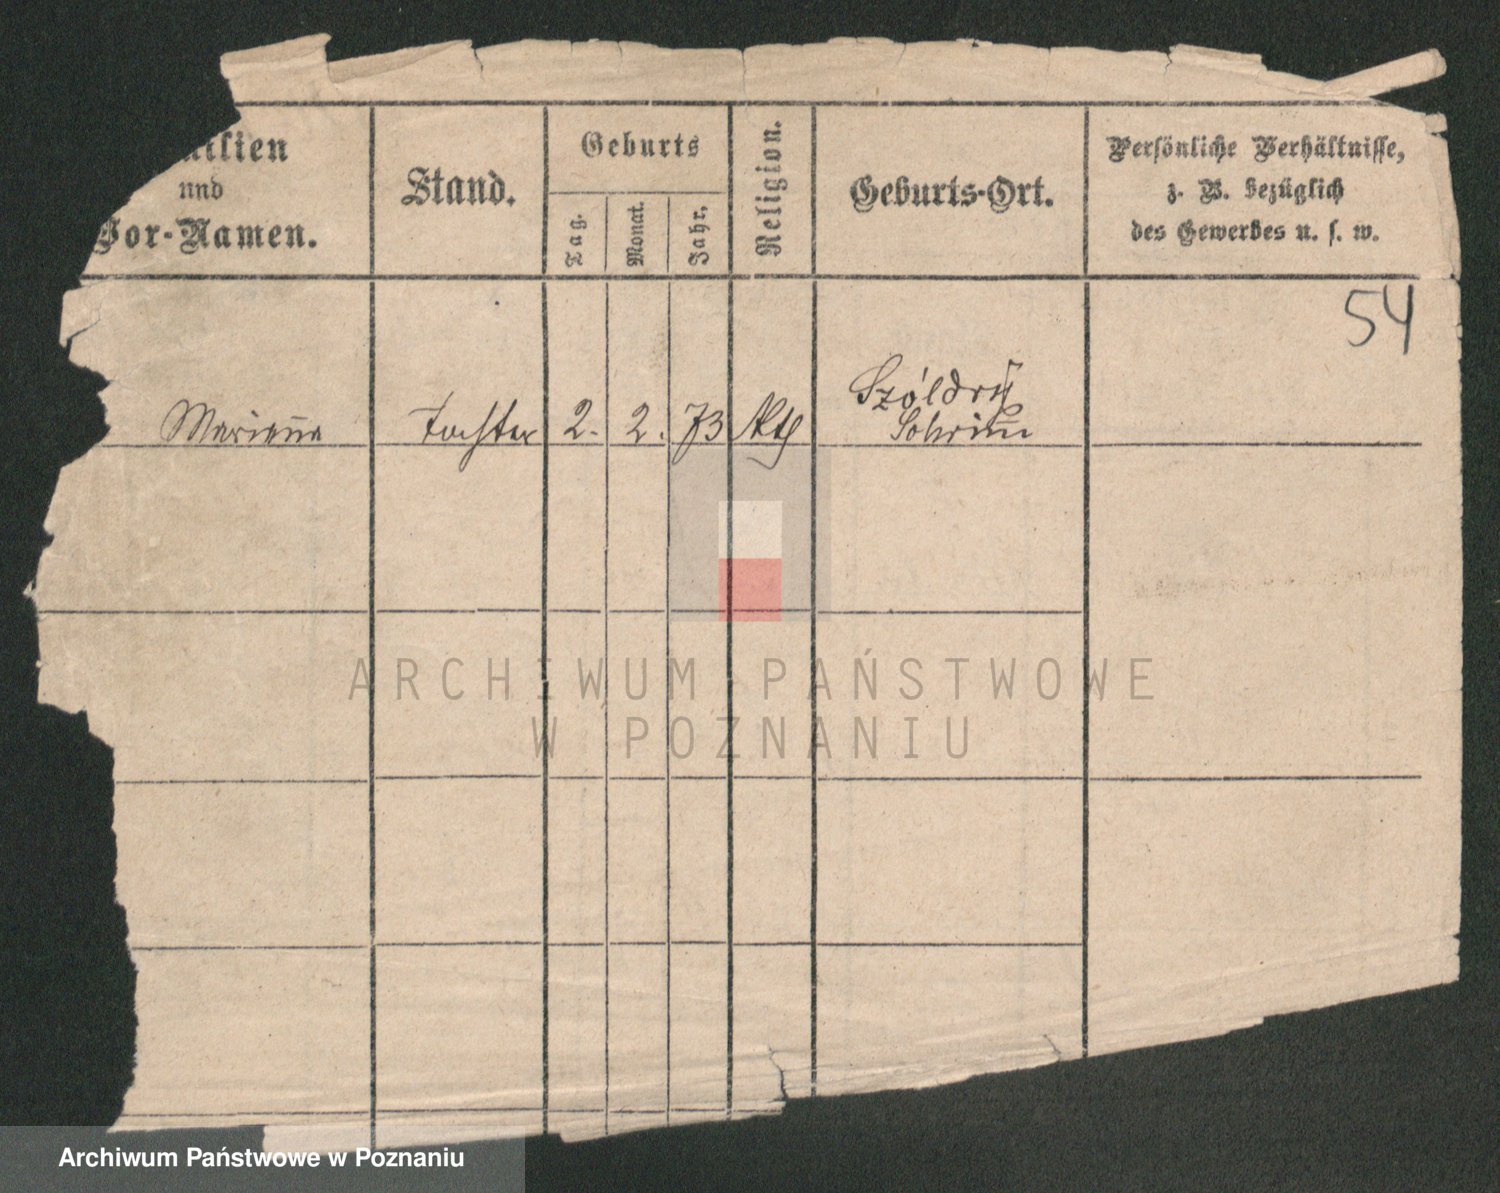 milien
und
Vor-Namen.
Stand.
Geburts
Tag.
Monat.
Jahr.
Religion.
Geburts-Ort.
Persönliche Verhältnisse,
z. B. bezüglich
des Gewerbes u. s. w.
54
Marianna Tochter 2. 2. 73 kth Szóldry
Schrimm
ARCHIWUM PAŃSTWOWE
W POZNANIU
Archiwum Państwowe w Poznaniu